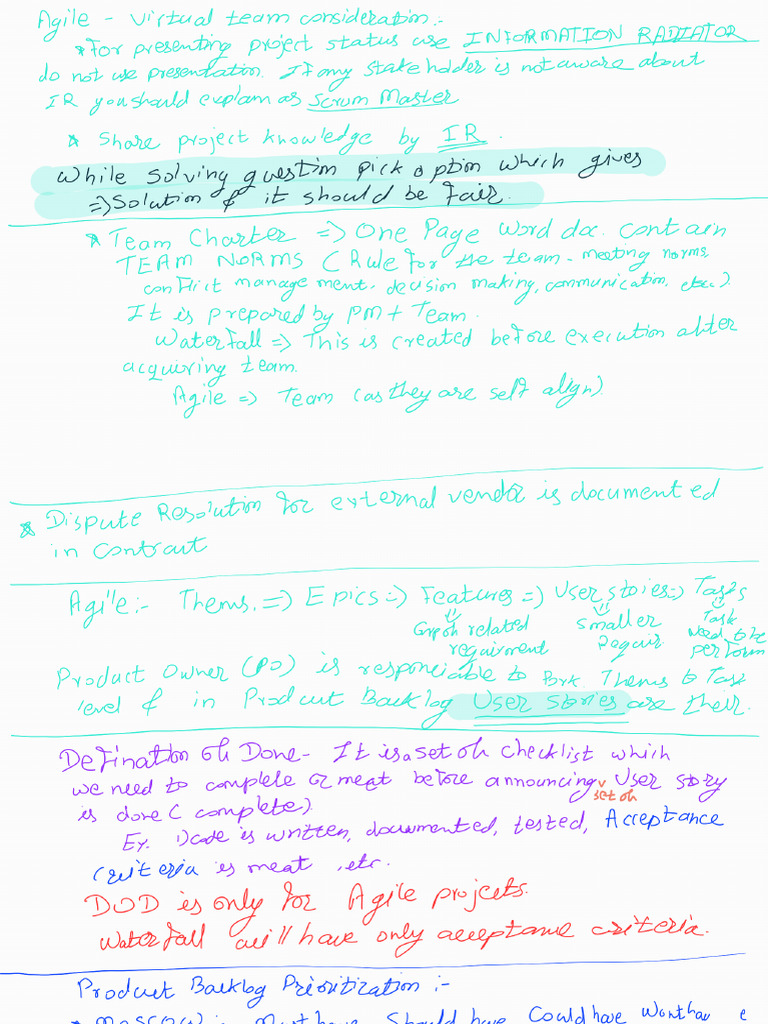 Agile - virtual team consideration:-
* For presenting project status use INFORMATION RADIATOR
do not use presentation. If any stakeholder is not aware about
IR you should explain as Scrum Master
* Share project knowledge by IR.
While solving question pick option which gives
=> Solution & it should be fair.
* Team Charter => One Page Word doc. contain
TEAM NORMS (Rule for the team - meeting norms
conflict management, decision making, communication, etc..)
It is prepared by PM + Team.
Waterfall => This is created before execution after
acquiring team.
Agile => Team (as they are self align)
* Dispute Resolution for external vendor is documented
in contract
Agile:- Thems. => Epics => Features => User stories => Tasks
Group related requirment
smaller Requir.
Task need to be perform
Product Owner (PO) is responciable to bork Thems to Task
level & in Product Backlog User stories are their.
Defination of Done - It is a set of checklist which
we need to complete or meat before announcing set of User story
is done (complete)
Ex. 1) code is written, documented, tested, Acceptance
criteria is meat, etc.
DOD is only for Agile projects.
Waterfall will have only acceptance criteria.
Product Backlog Prioritization :-
* MOSCOW :- Must have Should have Could have Wont have